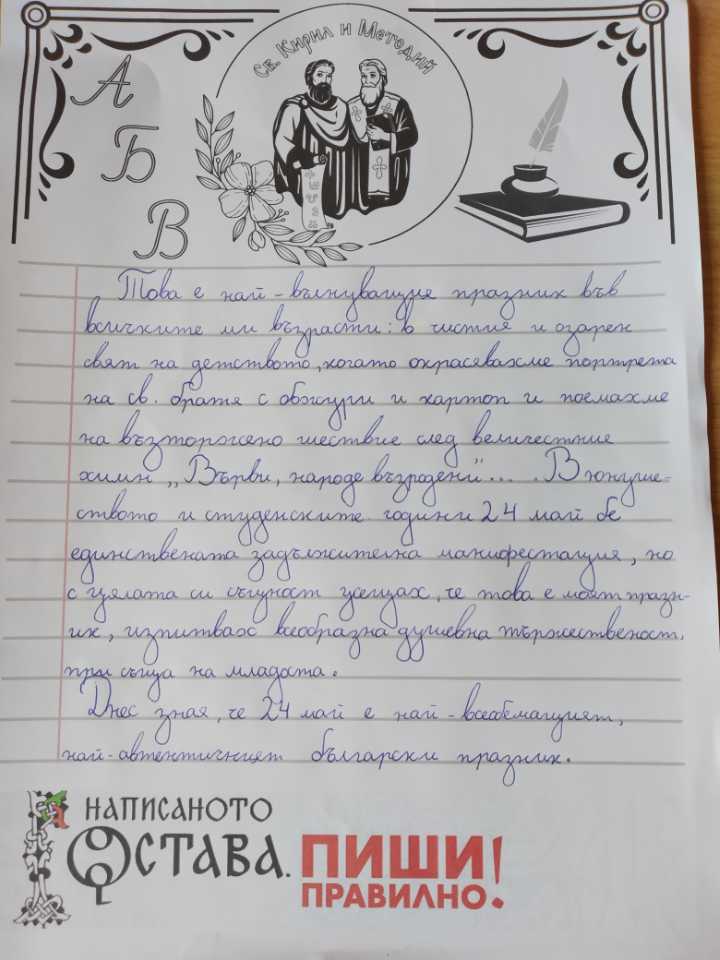 Св. Кирил и Методий
А
Б
В
Това е най-вълнуващия празник във
всичките ми възрасти: в чистия и озарен
свят на детството, когато окрасявахме портрета
на св. братя с божури и хартоп и поемахме
на възторжено шествие след величестние
химн „Върви, народе възродени"... . В юноше-
ството и студенските години 24 май бе
единствената задължителна манифестация, но
с цялата си същност усещах, че това е моят празн-
ик, изпитвах всеобразна душевна тържественост,
при съща на младоста.
Днес зная, че 24 май е най-всеобемащият,
най-автентичният български празник.
НАПИСАНОТО
ОСТАВА.
ПИШИ
ПРАВИЛНО!